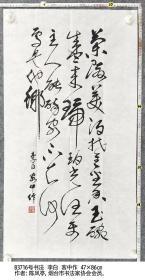 兰陵美酒郁金香玉碗
盛来琥珀光但使
主人能醉客不知何
处是他乡
李白 客中作
83716号书法 李白 客中作 47×86cm
作者:陈凤亭,烟台市书法家协会会员。